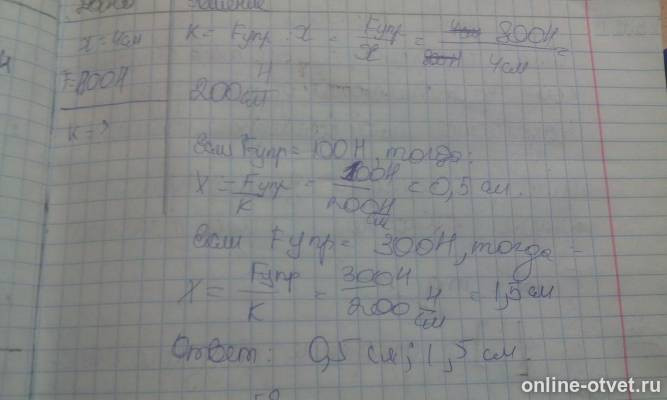 Дано Решение
x = 4 см K = Fупр : x = Fупр / x = 800Н / 4 см =
F=800Н
200 Н/см
K = ?
Если Fупр = 100 Н, тогда:
X = Fупр / K = 100Н / 200 Н/см = 0,5 см.
Если Fупр = 300Н, тогда
X = Fупр / K = 300Н / 200 Н/см = 1,5 см
Ответ: 0,5 см; 1,5 см.
online-otvet.ru